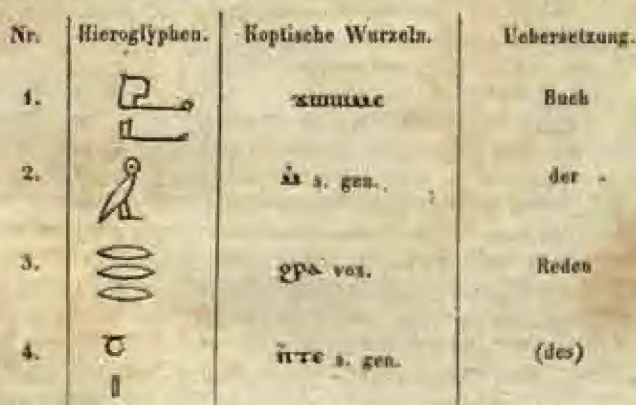 Nr. Hieroglÿphen. Koptische Wurzeln. Uebersetzung.
1. ϫⲱⲱⲙⲉ Buch
2. s. gen. der
3. ϩⲣⲁ vox. Reden
4. ⲛ̄ⲧⲉ s. gen. (des)